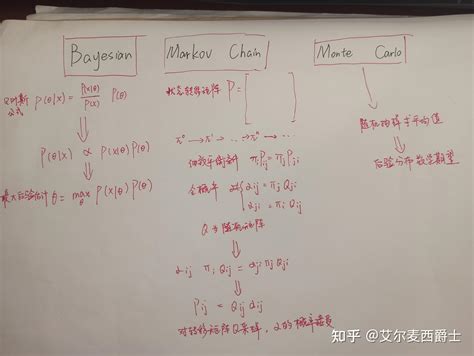 Bayesian
公式 P(θ|x) = P(x|θ)/P(x) P(θ)
P(θ|x) ∝ P(x|θ)P(θ)
最大后验估计 θ = max_θ P(x|θ) P(θ)
Markov Chain
状态转移矩阵 P = [ ]
π⁰ → π¹ → ... → πⁿ → ...
细致平衡条件 πᵢPᵢⱼ = πⱼPⱼᵢ
αᵢⱼ = πⱼ Qⱼᵢ
αⱼᵢ = πᵢ Qᵢⱼ
Q 为随机矩阵
αᵢⱼ πᵢ Qᵢⱼ = αⱼᵢ πⱼ Qⱼᵢ
Pᵢⱼ = Qᵢⱼ αᵢⱼ
对转移矩阵Q采样, α的概率接受
Monte Carlo
随机抽样求平均值
后验分布数学期望
知乎 @艾尔麦西爵士